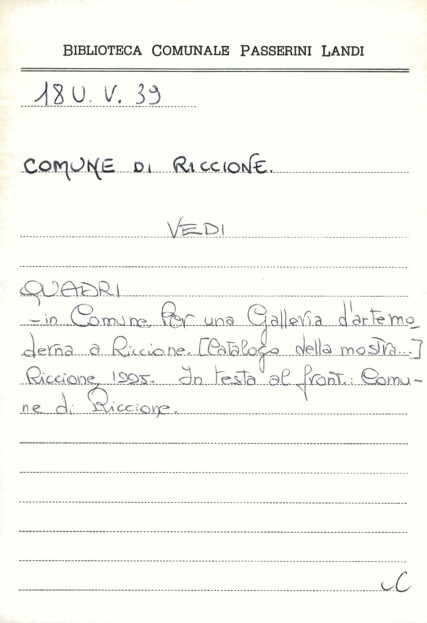 BIBLIOTECA COMUNALE PASSERINI LANDI
18 U. V. 39
COMUNE DI RICCIONE.
VEDI
QUADRI
- in Comune Per una Galleria d'arte mo
derna a Riccione. [Catalogo della mostra...]
Riccione, 1995. In testa al front.: Comu-
ne di Riccione.